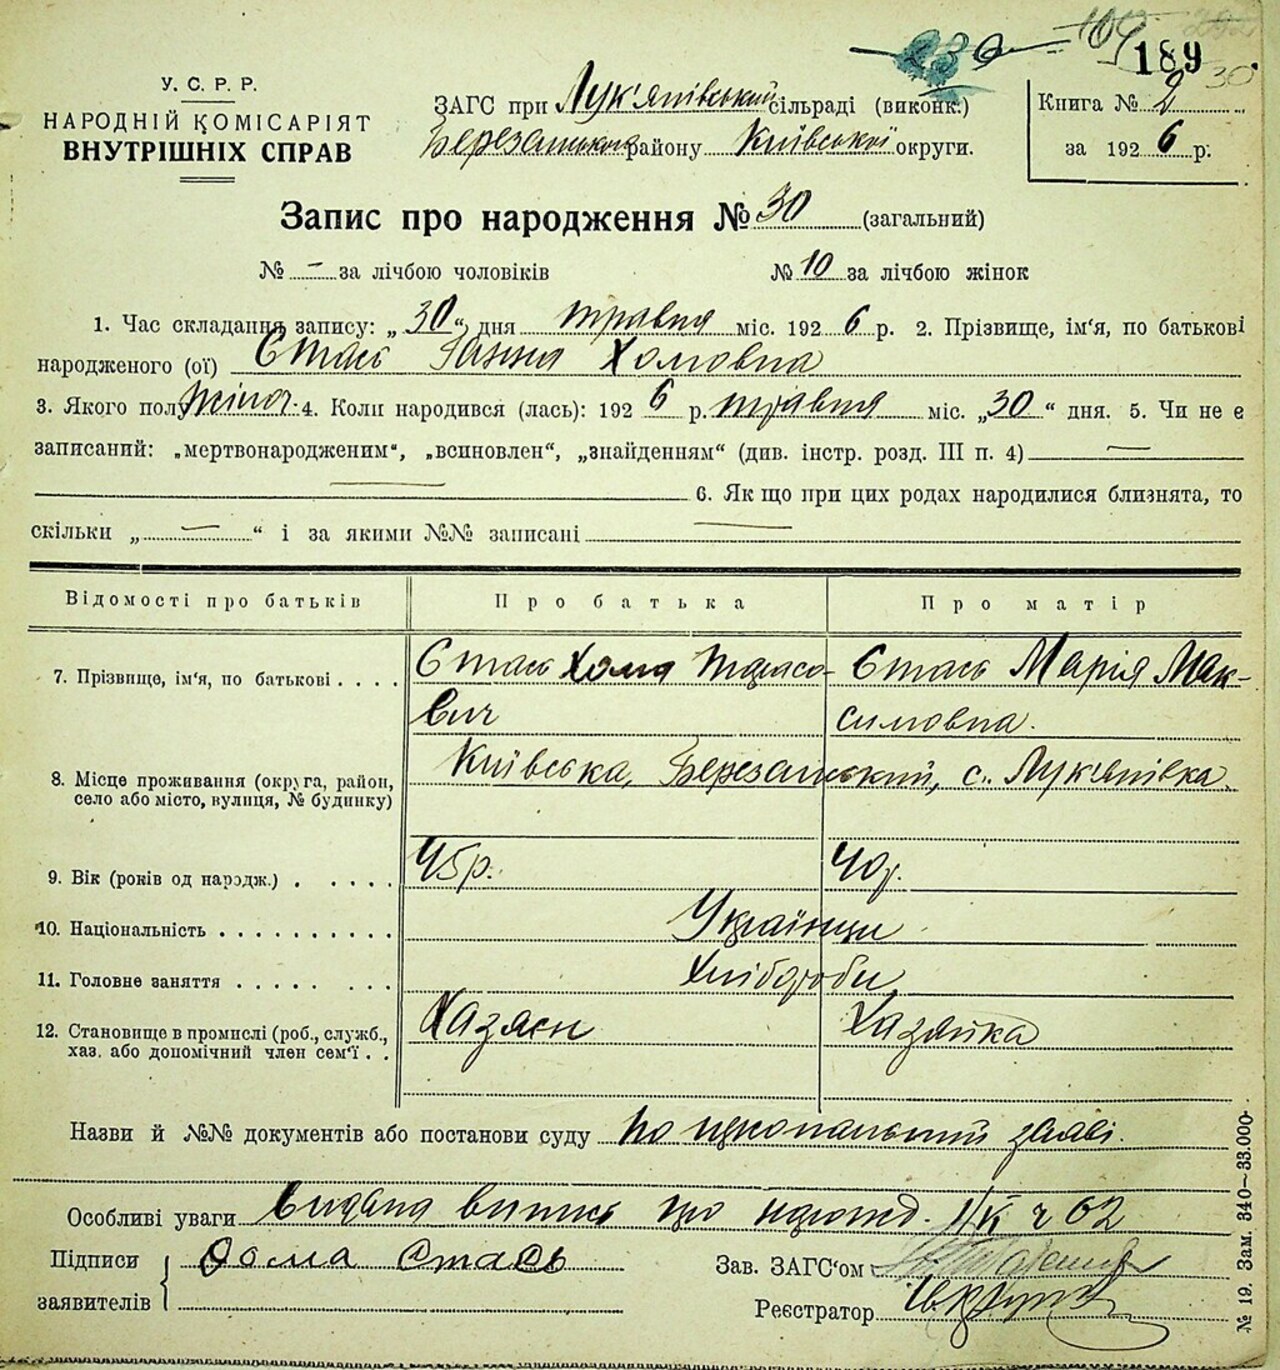 189
30
У. С. Р. Р.
НАРОДНІЙ КОМІСАРІЯТ
ВНУТРІШНІХ СПРАВ
ЗАГС при Лук'янівський сільраді (виконк.)
Березанського району Київської округи.
Книга № 2
за 1926 р.
Запис про народження № 30 (загальний)
№ – за лічбою чоловіків № 10 за лічбою жінок
1. Час складання запису: „30“ дня травня міс. 1926 р. 2. Прізвище, ім'я, по батькові
народженого (ої) Стась Ганна Хомовна
3. Якого полу жіноч. 4. Коли народився (лась): 1926 р. травня міс. „30“ дня. 5. Чи не є
записаний: „мертвонародженим“, „всиновлен“, „знайденням“ (див. інстр. розд. III п. 4) —
— 6. Як що при цих родах народилися близнята, то
скільки „—“ і за якими №№ записані —
Відомості про батьків Про батька Про матір
7. Прізвище, ім'я, по батькові . . . . Стась Хома Тарасович Стась Марія Максимовна.
8. Місце проживання (округа, район,
село або місто, вулиця, № будинку) Київська, Березанський, с. Лук'янівка.
9. Вік (років од народж.) . . . . . 45р. 40р.
10. Національність . . . . . . . . . . Українці
11. Головне заняття . . . . . . . . Хлібороби
12. Становище в промислі (роб., служб.,
хаз. або допомічний член сем'ї . . Хазяєн Хазяйка
Назви й №№ документів або постанови суду По заяві.
Особливі уваги Видана випись про народ. ч 62
Підписи
заявителів
Хома Стась
Зав. ЗАГС'ом
Реєстратор
№ 19. Зам. 340—33.000.